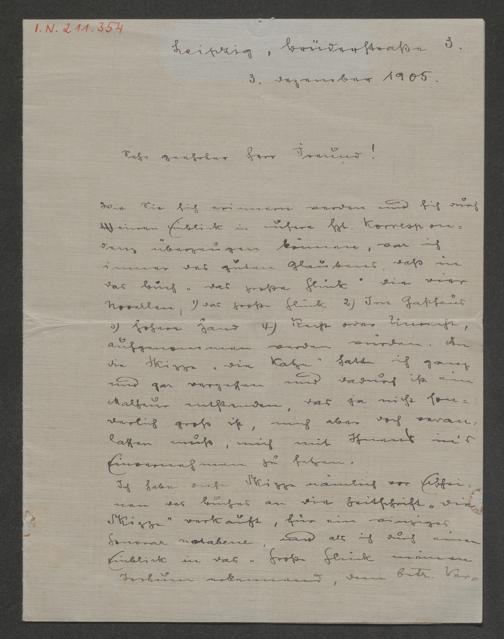 I.N. 211.354
Leipzig, Brüderstraße 3.
3. Dezember 1905.
Sehr geehrter Herr Freund!
Wie Sie sich erinnern werden und sich durch
einen Einblick in unsere Korrespon-
denz überzeugen können, war ich
immer des guten Glaubens, daß in
das Buch „das große Glück" die vier
Novellen, 1) das große Glück 2) Im Gasthaus
3) höhere Hand 4) Recht oder Unrecht,
aufgenommen werden würden. An
die Skizze „die Katze" hatte ich ganz
und gar vergessen und dadurch ist ein
Malheur entstanden, das ja nicht son-
derlich groß ist, mich aber doch veran-
lassen muß, mich mit Ihnen in's
Einvernehmen zu setzen.
Ich habe diese Skizze nämlich vor Erschei-
nen des Buches an die Zeitschrift „Die
Skizze" verkauft, für ein winziges
Honorar notabene, und als ich durch einen
Einblick in das „Große Glück" meinen
Irrtum erkennend, dem betr. Ver-